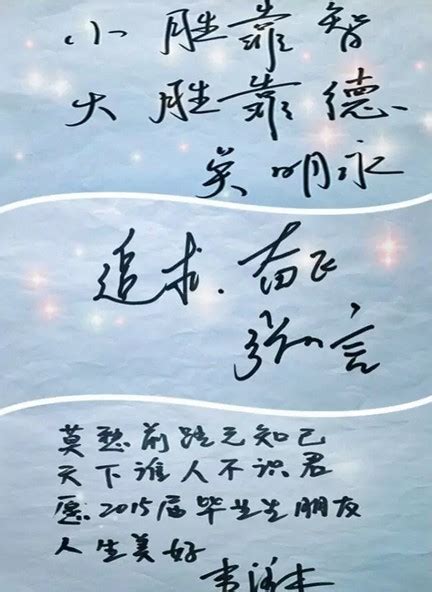 小胜靠智
大胜靠德
吴明永
追求、奋飞
莫愁前路无知己
天下谁人不识君
愿2015届毕业生朋友
人生美好